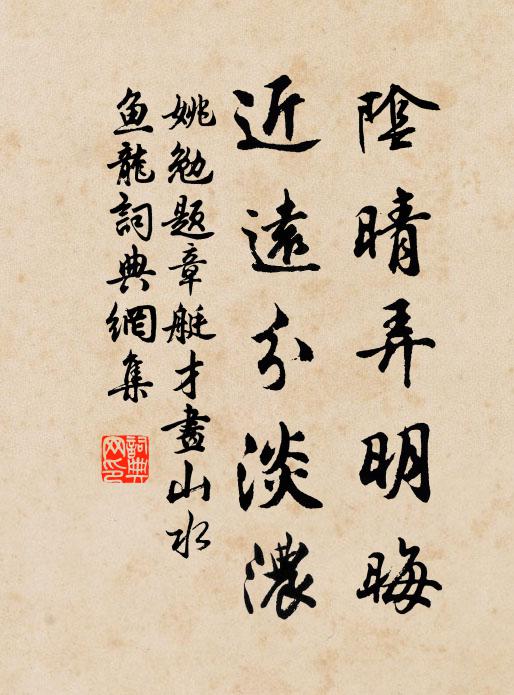 陰晴弄明晦
近遠分淡濃
姚勉题章艇才畫山水
魚龍詞典網集
詞典网印